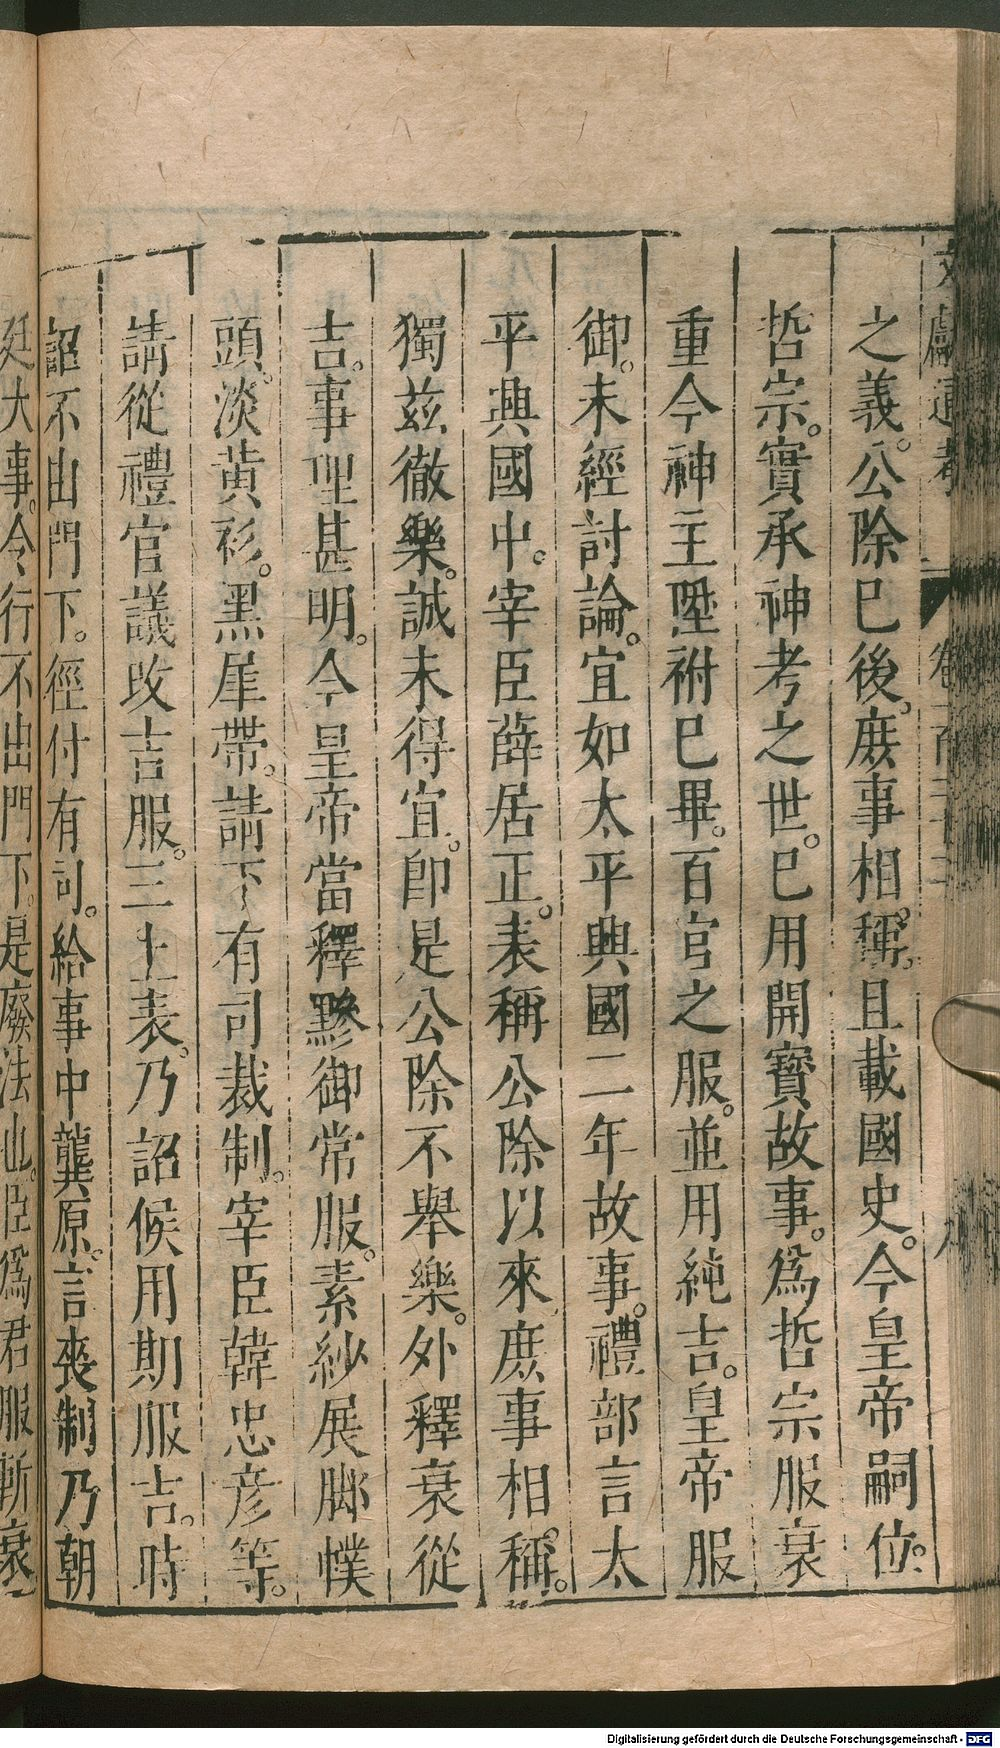 文獻通考 卷一百二十二 八
之義。公除已後。庻事相稱。且載國史。今皇帝嗣位。
哲宗。實承神考之世。已用開寶故事。爲哲宗服衰
重今神主陞祔已畢。百官之服。並用純吉。皇帝服
御。未經討論。宜如太平興國二年故事。禮部言太
平興國中。宰臣薛居正。表稱公除以來庶事相稱。
獨茲徹樂。誠未得宜。卽是公除不舉樂。外釋衰從
吉。事理甚明。今皇帝當釋黲御常服。素紗展脚幞
頭。淡黃衫。黑犀帶。請下有司裁制。宰臣韓忠彦等。
請從禮官議改吉服。三上表。乃詔候用期服吉。時
詔不由門下。徑付有司。給事中龔原。言喪制乃朝
廷大事。令行不出門下。是廢法也。臣爲君服斬衰
Digitalisierung gefördert durch die Deutsche Forschungsgemeinschaft - DFG